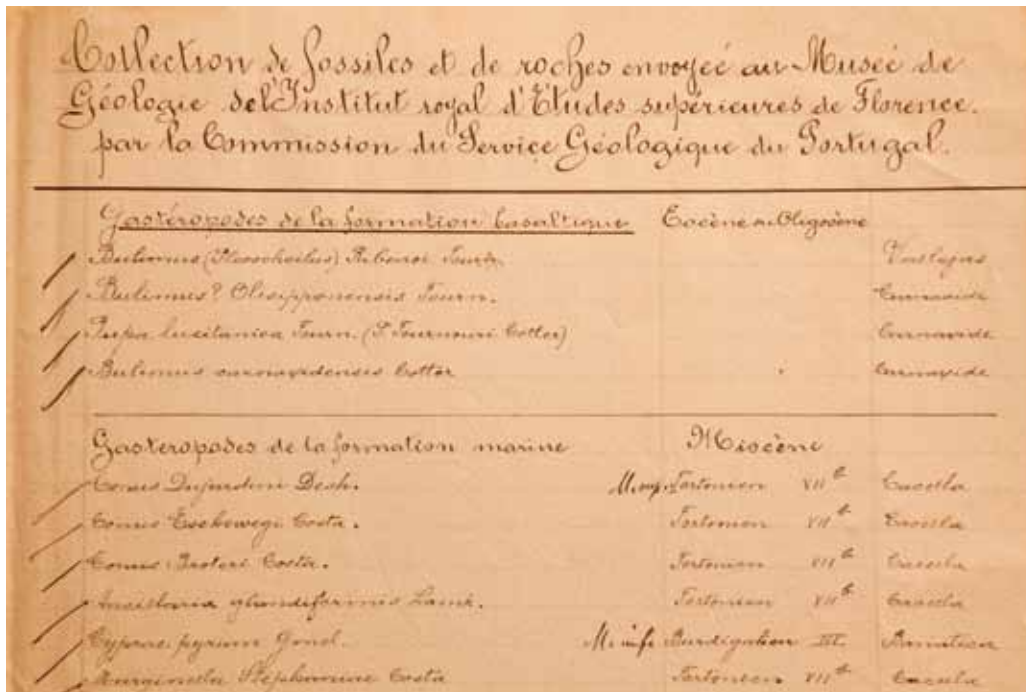 Collection de fossiles et de roches envoyée au Musée de
Géologie de l'Institut royal d'Études supérieures de Florence.
par la Commission du Service Géologique du Portugal.
Gastéropodes de la formation basaltique Eocène ou Oligocène
Bulimus Ribeiroi Tourn.
Bulimus? Olisipponensis Tourn. Carnaxide
Pupa lusitanica Tourn. (P. Tournoueri Cotter) Carnaxide
Bulimus carnaxidensis Cotter Carnaxide
Gastéropodes de la formation marine Miocène
Conus Dujardini Desh. M. sup. Tortonien VII b Cacella
Conus Eschwegi Costa. Tortonien VII b Cacella
Conus Broteri Costa. Tortonien VII b Cacella
Ancillaria glandiformis Lamk. Tortonien VII b Cacella
Cypraea pyrum Gmel. M. inf. Burdigalien III
Marginella Stephaniae Costa Tortonien VII b Cacella